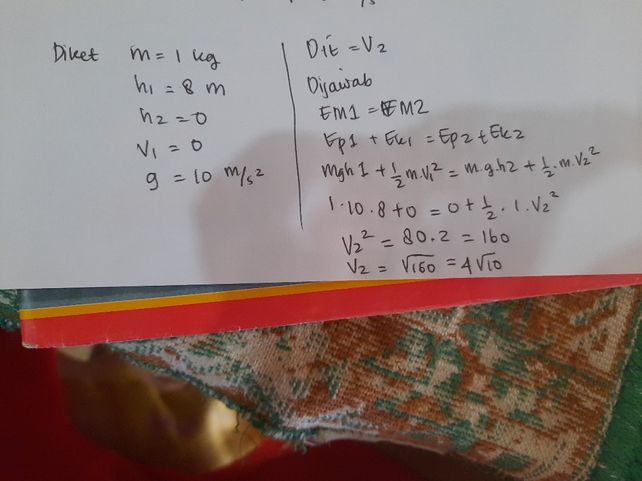 Diket m = 1 kg
h1 = 8 m
h2 = 0
V1 = 0
g = 10 m/s²
Dit = V2
Dijawab
EM1 = EM2
Ep1 + Ek1 = Ep2 + Ek2
mgh1 + 1/2 m.V1² = m.g.h2 + 1/2.m.V2²
1.10.8 + 0 = 0 + 1/2 . 1 . V2²
V2² = 80.2 = 160
V2 = √160 = 4√10